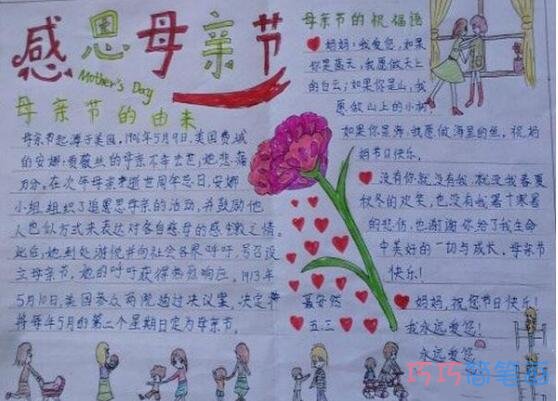 感恩母亲节
Mother's Day
母亲节的由来
母亲节起源于美国，1906年5月9日，美国费城
的安娜·贾薇丝的母亲不幸去世，她悲痛
万分，在次年母亲逝世周年忌日，安娜
小姐组织了追思母亲的活动，并鼓励他
人也似方式来表达对各自慈母的感激之情。
此后，她到处游说并向社会各界呼吁，号召设
立母亲节，她的呼吁获得热烈响应，1913年
5月10日，美国参众两院通过决议案，决定
将每年5月的第二个星期日定为母亲节。
母亲节的祝福语
妈妈：我爱您，如果
你是蓝天，我愿做天上
的白云；如果你是山，我
愿做山上的小树，
如果你是海，我愿做海里的鱼，祝妈
妈节日快乐。
没有你，就没有我，就没有春夏
秋冬的欢笑，也没有
的悲伤，也谢谢你给了我生命
中美好的一切与成长，母亲节
快乐！
妈妈，祝您节日快乐！
我永远爱您！
永远爱您
聂安然
五.三
巧巧简笔画